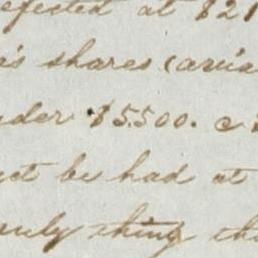 effected at $21
's shares (
under $5500. a
not be had at
only thing th